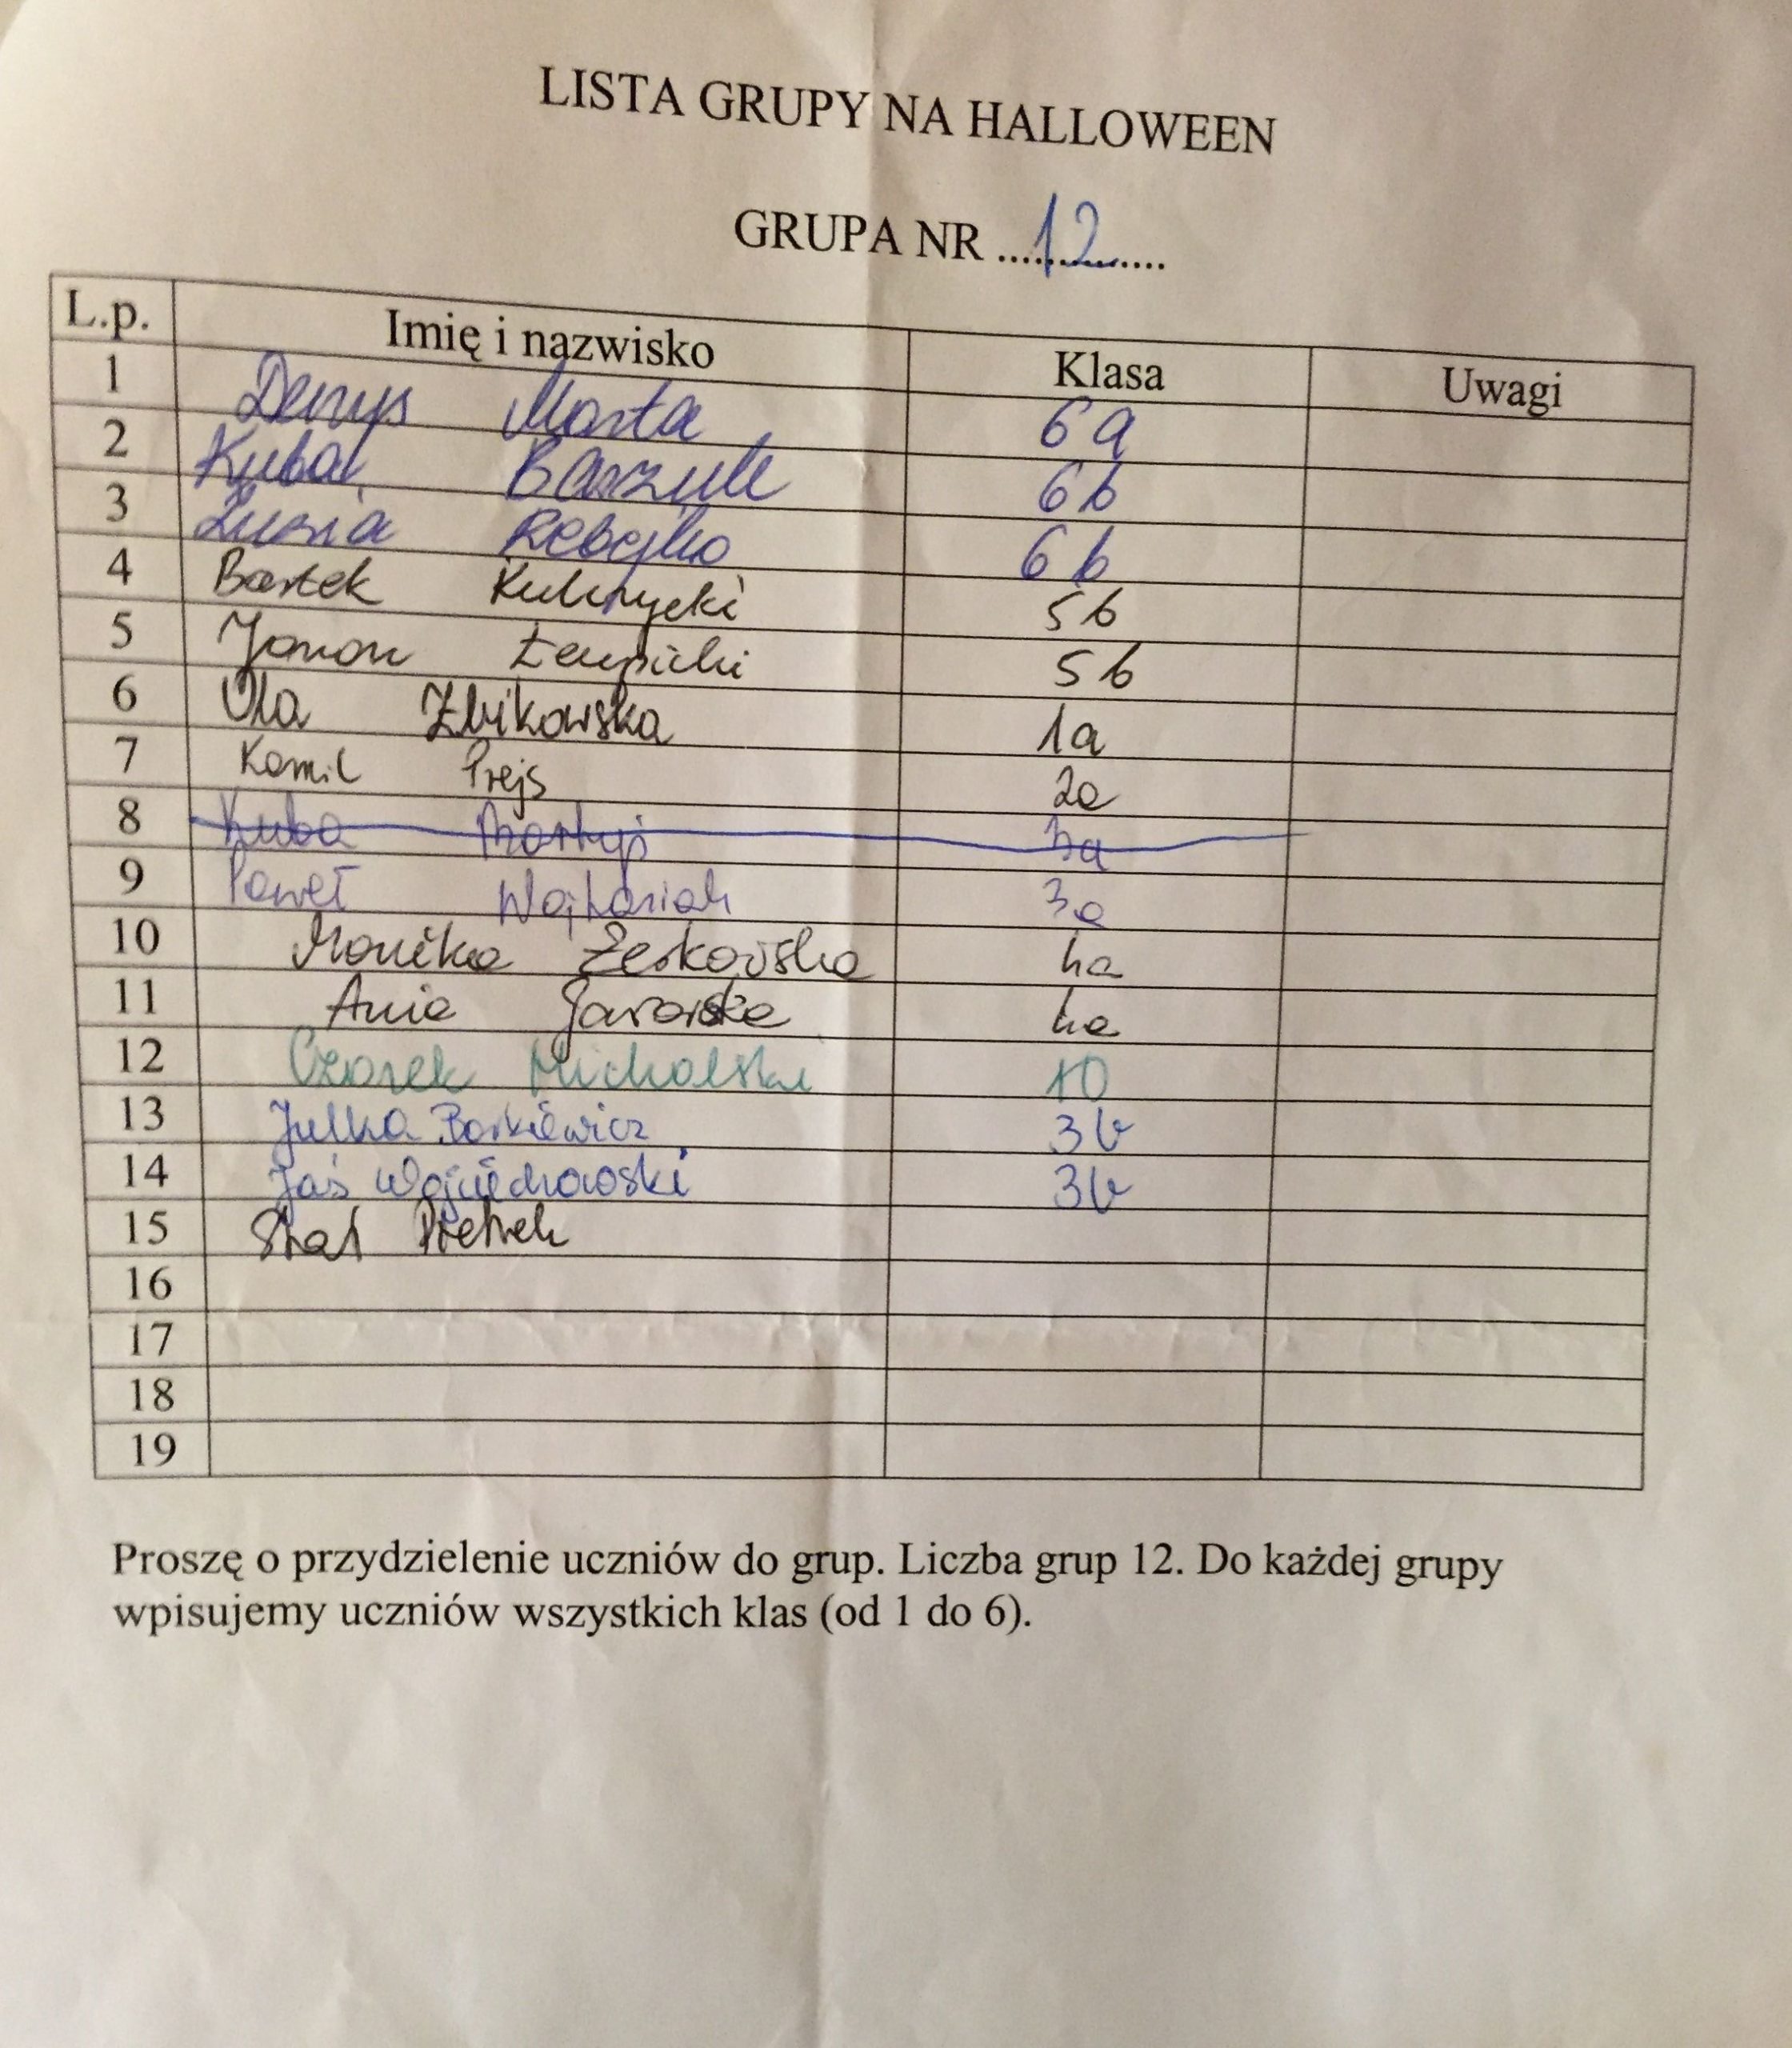 LISTA GRUPY NA HALLOWEEN
GRUPA NR ....12....
L.p. Imię i nazwisko Klasa Uwagi
1 Denys Marta 6a
2 Kuba 6b
3 Zuzia Rebejko 6b
4 Bartek 5b
5 5b
6 Ola Żbikowska 1a
7 Kamil Prejs 2a
8 Kuba
9 Paweł 3a
10 Monika Żerkowska 4a
11 Ania 4a
12 Czarek Michalski
13 Julka Borkiewicz 3b
14 Jaś Wojciechowski 3b
15 Staś Pietrek
16
17
18
19
Proszę o przydzielenie uczniów do grup. Liczba grup 12. Do każdej grupy
wpisujemy uczniów wszystkich klas (od 1 do 6).